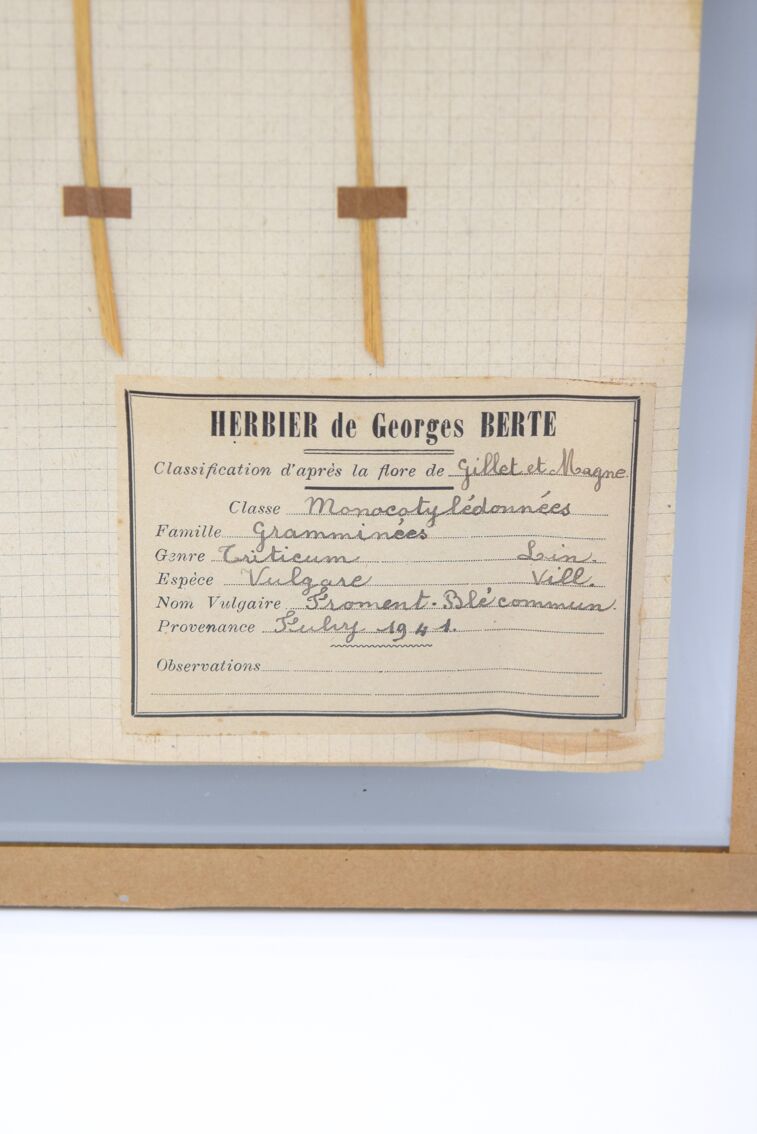 HERBIER de Georges BERTE
Classification d'après la flore de Gillet et Magne
Classe Monocotylédonnées
Famille Gramminées
Genre Triticum Lin.
Espèce Vulgare Vill.
Nom Vulgaire Froment. Blé commun.
Provenance 1941.
Observations